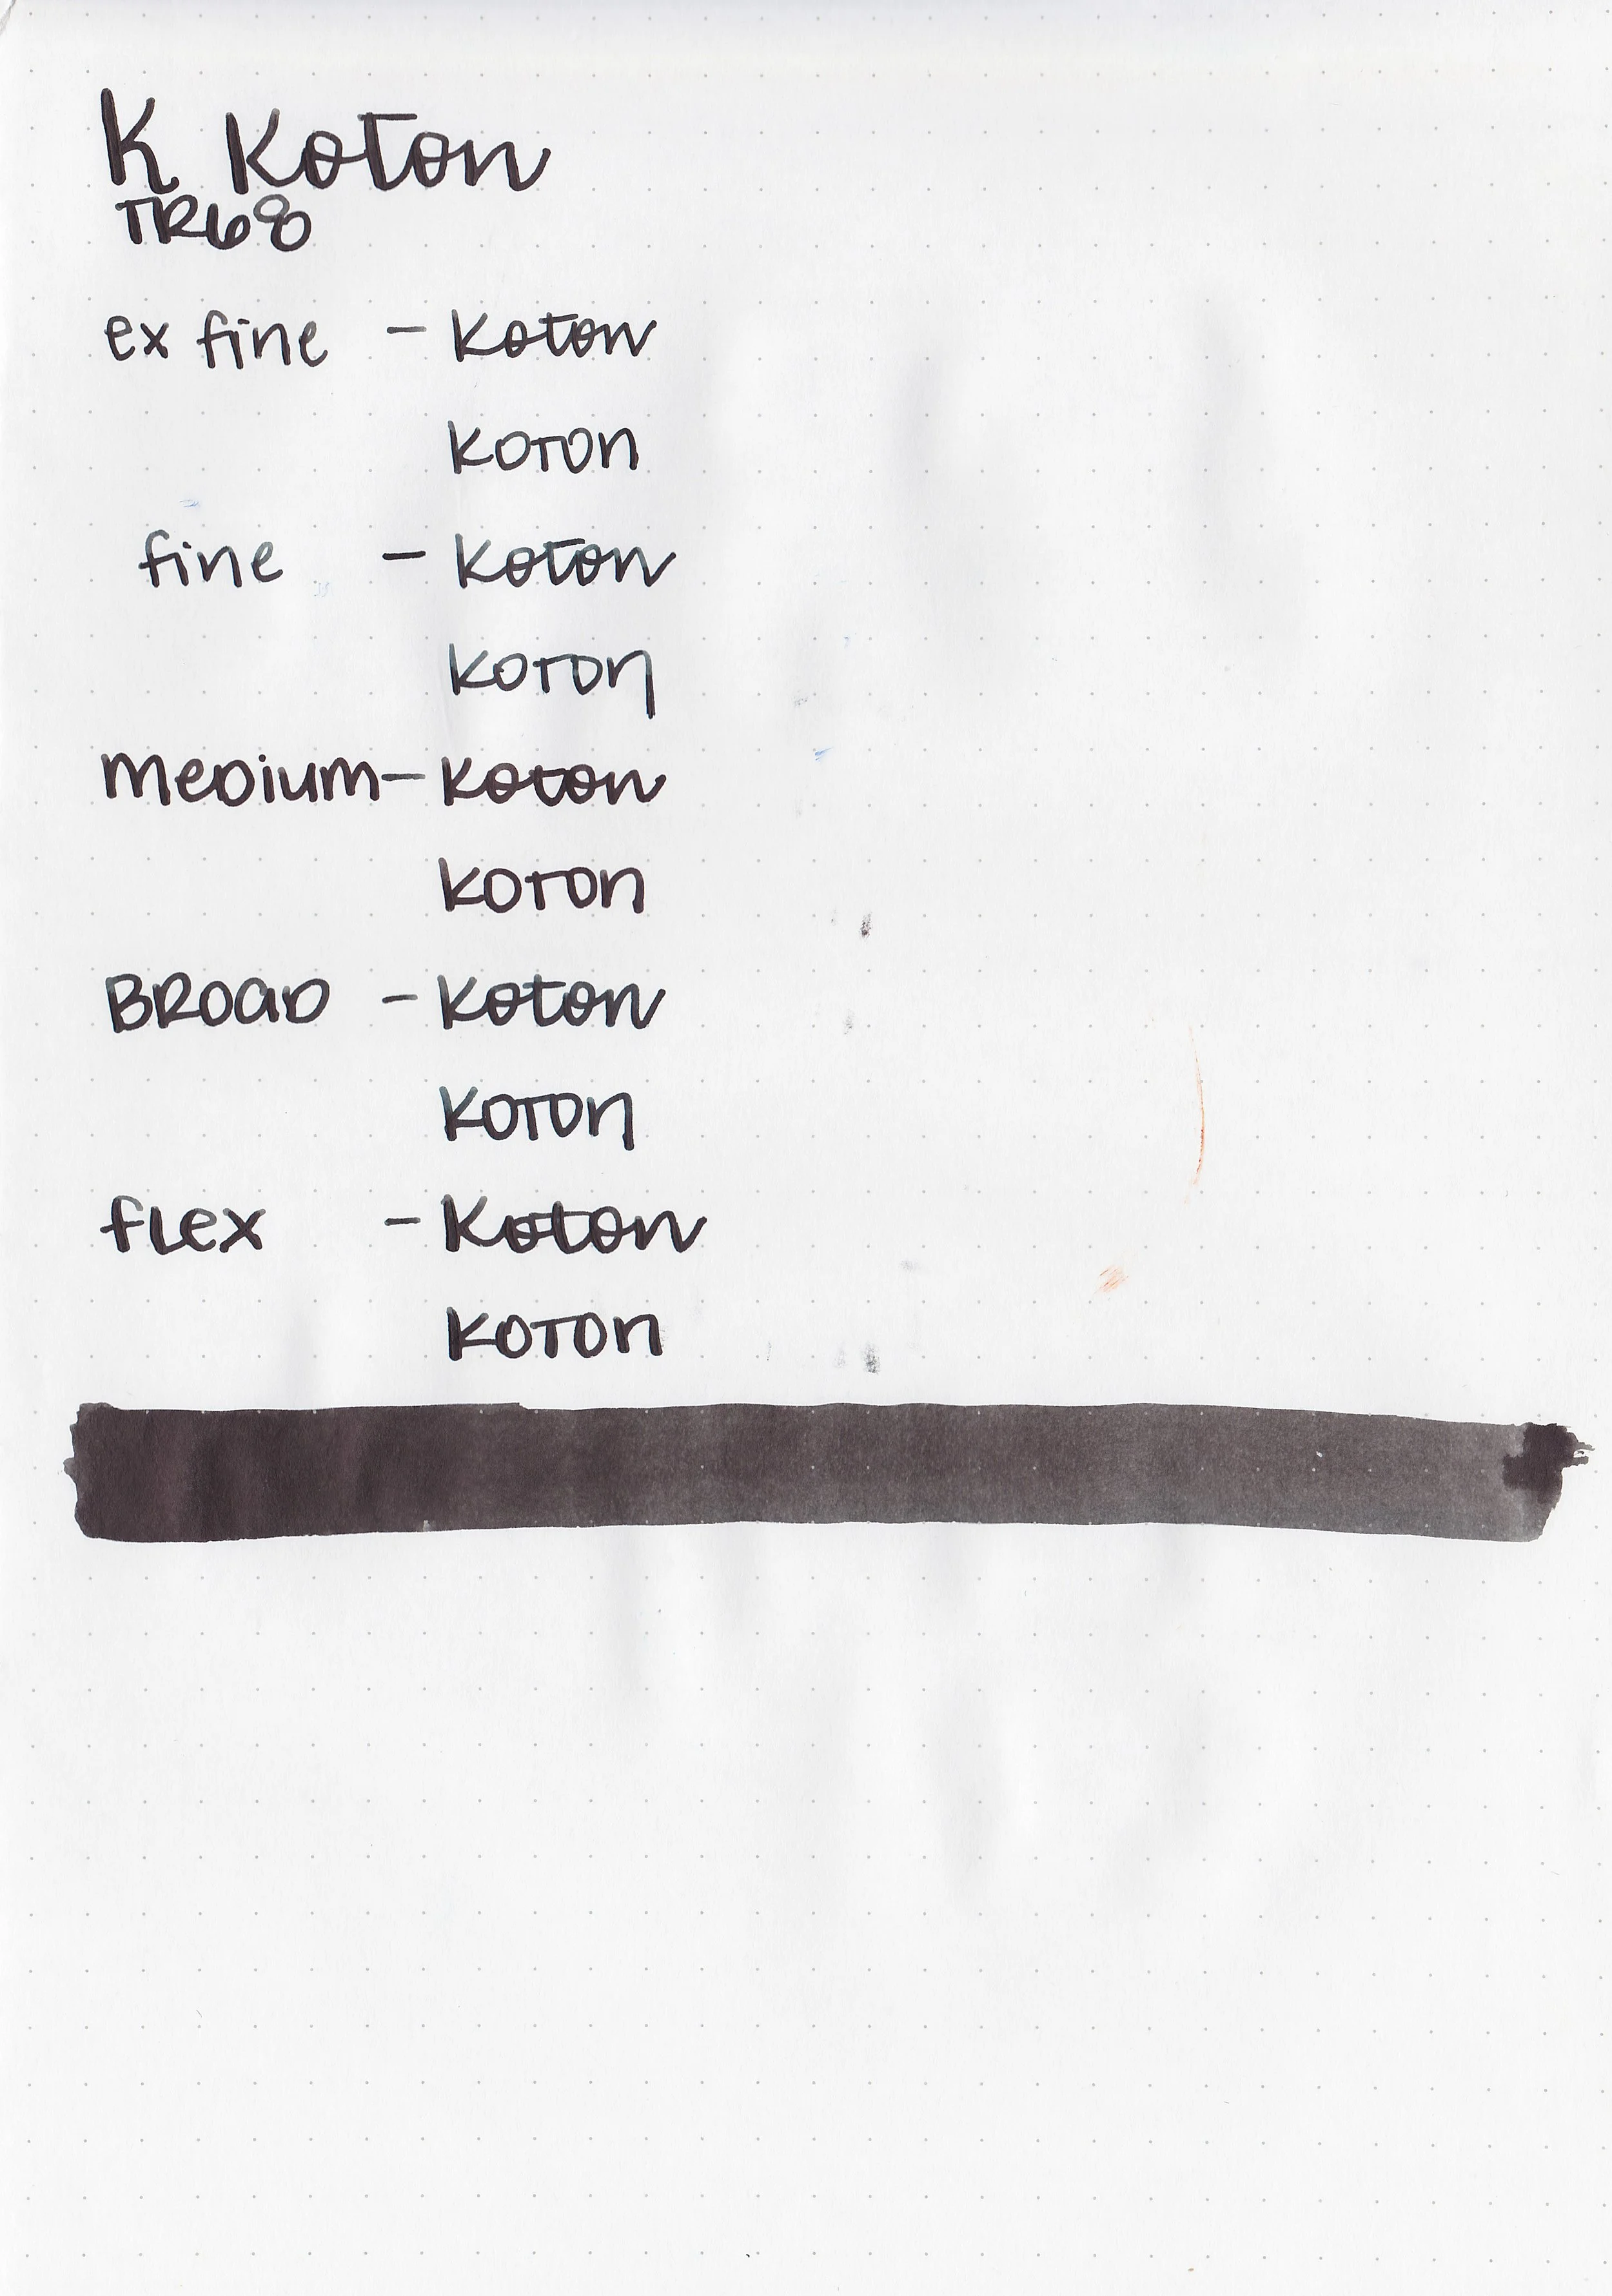 K Koton
TR68
ex fine - Koton
Koton
fine - Koton
Koton
Medium - Koton
Koton
Broad - Koton
Koton
flex - Koton
Koton